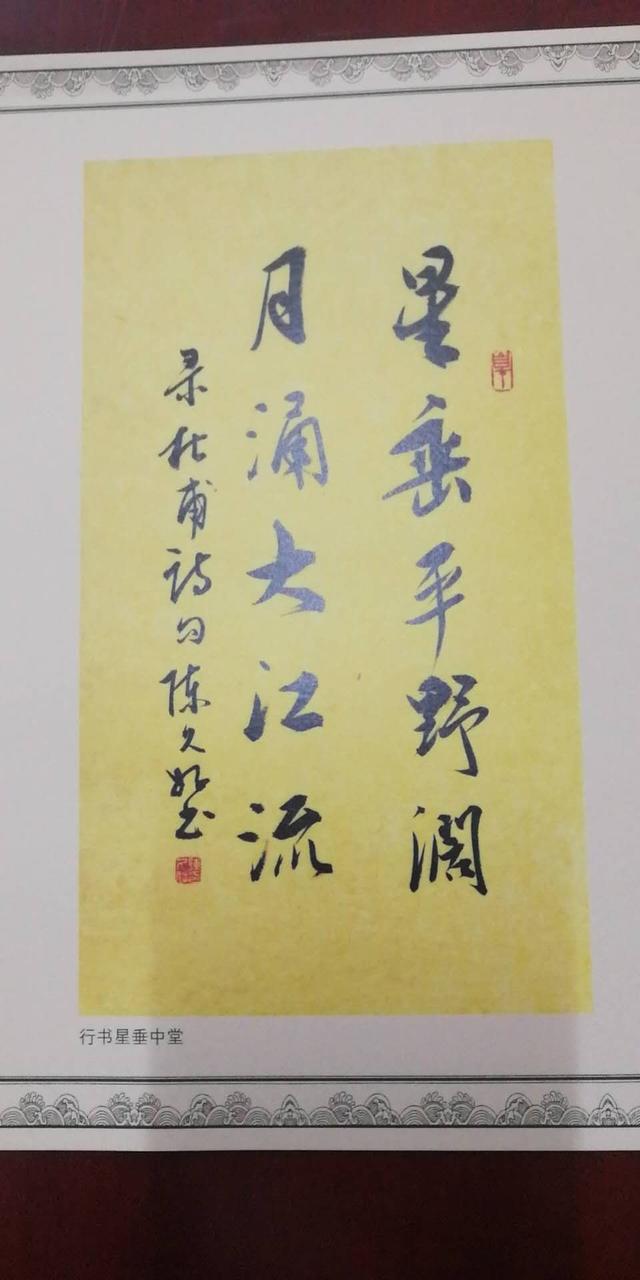 星垂平野濶
月涌大江流
录杜甫詩句陈久
书
行书星垂中堂